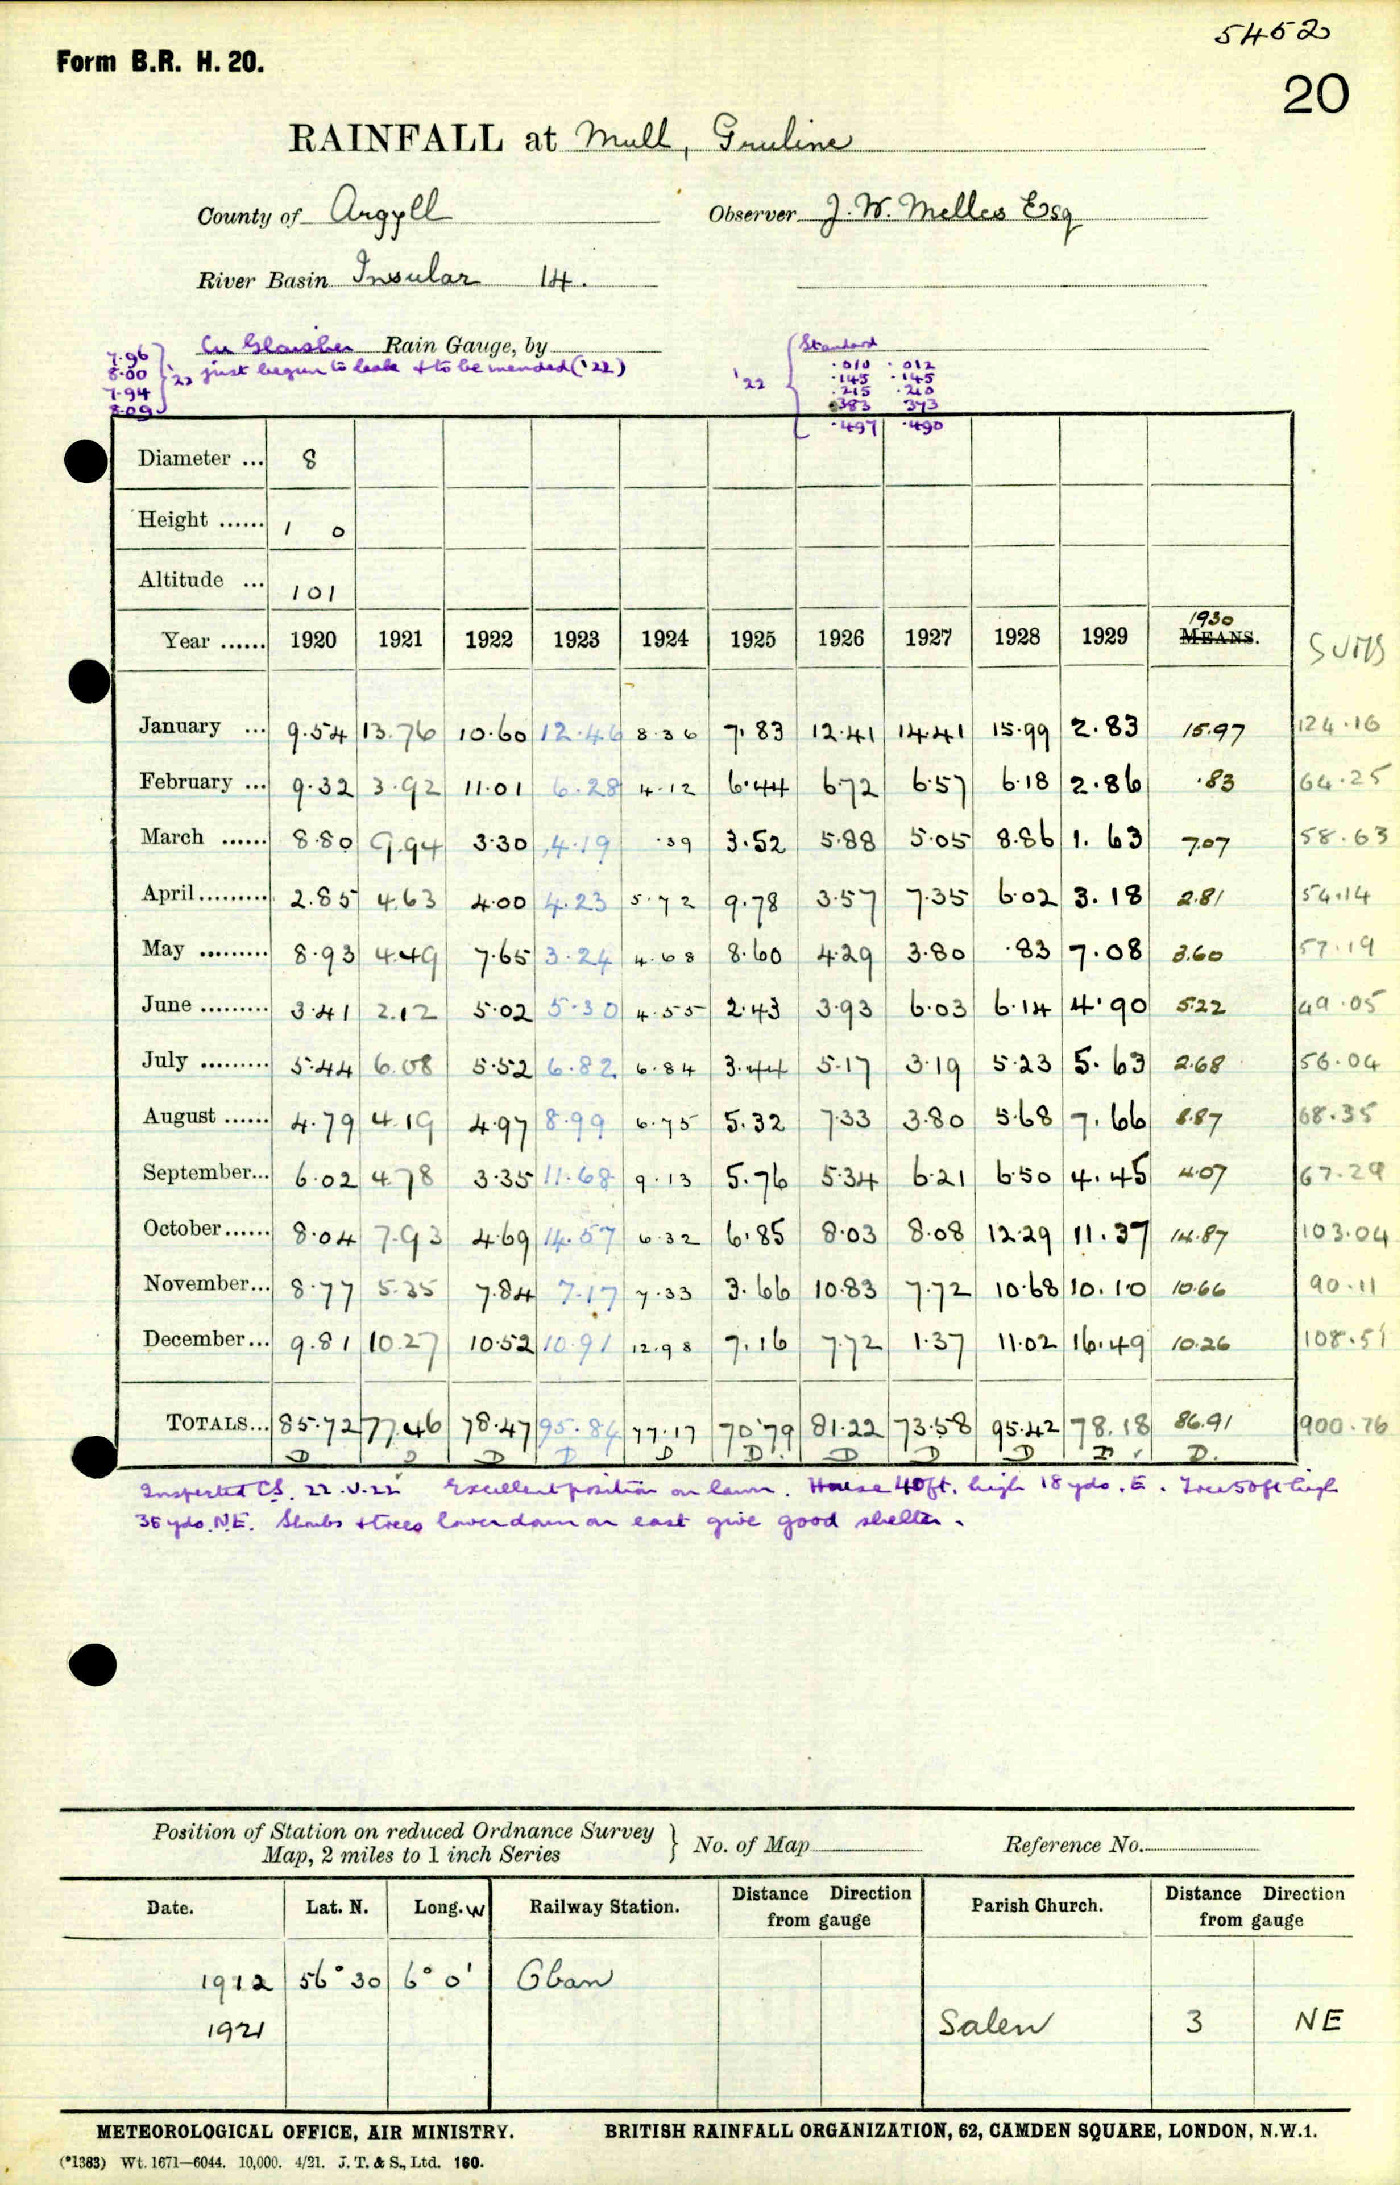 5452
Form B.R. H. 20.
20
RAINFALL at Mull, Gruline
County of Argyll Observer J. W. Melles Esq
River Basin Insular 14.
Cu Glaisher Rain Gauge, by
7.96
8.00
7.94
8.09
'22 just begun to leak & to be mended ('22)
'22 Standard
.010 .012
.145 .145
.215 .210
.383 .373
.497 .490
Diameter ... 8
Height ...... 1 0
Altitude ... 101
Year ...... 1920 1921 1922 1923 1924 1925 1926 1927 1928 1929 MEANS. 1930 SUMS
January ... 9.54 13.76 10.60 12.46 8.36 7.83 12.41 14.41 15.99 2.83 15.97 124.16
February ... 9.32 3.92 11.01 6.28 4.12 6.44 6.72 6.57 6.18 2.86 .83 64.25
March ...... 8.80 9.94 3.30 4.19 .39 3.52 5.88 5.05 8.86 1.63 7.07 58.63
April......... 2.85 4.63 4.00 4.23 5.72 9.78 3.57 7.35 6.02 3.18 2.81 54.14
May ......... 8.93 4.49 7.65 3.24 4.68 8.60 4.29 3.80 .83 7.08 3.60 57.19
June ......... 3.41 2.12 5.02 5.30 4.55 2.43 3.93 6.03 6.14 4.90 5.22 49.05
July ......... 5.44 6.08 5.52 6.82 6.84 3.44 5.17 3.19 5.23 5.63 2.68 56.04
August ...... 4.79 4.19 4.97 8.99 6.75 5.32 7.33 3.80 5.68 7.66 8.87 68.35
September... 6.02 4.78 3.35 11.68 9.13 5.76 5.34 6.21 6.50 4.45 4.07 67.29
October...... 8.04 7.93 4.69 14.57 6.32 6.85 8.03 8.08 12.29 11.37 14.87 103.04
November... 8.77 5.35 7.84 7.17 7.33 3.66 10.83 7.72 10.68 10.10 10.66 90.11
December... 9.81 10.27 10.52 10.91 12.98 7.16 7.72 1.37 11.02 16.49 10.26 108.51
TOTALS... 85.72 77.46 78.47 95.84 77.17 70.79 81.22 73.58 95.42 78.18 86.91 900.76
D D D D D D D D D D D.
Inspected CS. 22.V.22 Excellent position on lawn. House 40ft. high 18 yds. E. Tree 50ft high
35 yds. N.E. Shrubs & trees lower down on east give good shelter.
Position of Station on reduced Ordnance Survey
Map, 2 miles to 1 inch Series } No. of Map Reference No.
Date. Lat. N. Long. W Railway Station. Distance Direction from gauge Parish Church. Distance Direction from gauge
1912 56° 30 6° 0' Oban
1921 Salen 3 NE
METEOROLOGICAL OFFICE, AIR MINISTRY. BRITISH RAINFALL ORGANIZATION, 62, CAMDEN SQUARE, LONDON, N.W.1.
(*1383) Wt. 1671—6044. 10,000. 4/21. J. T. & S., Ltd. 160.